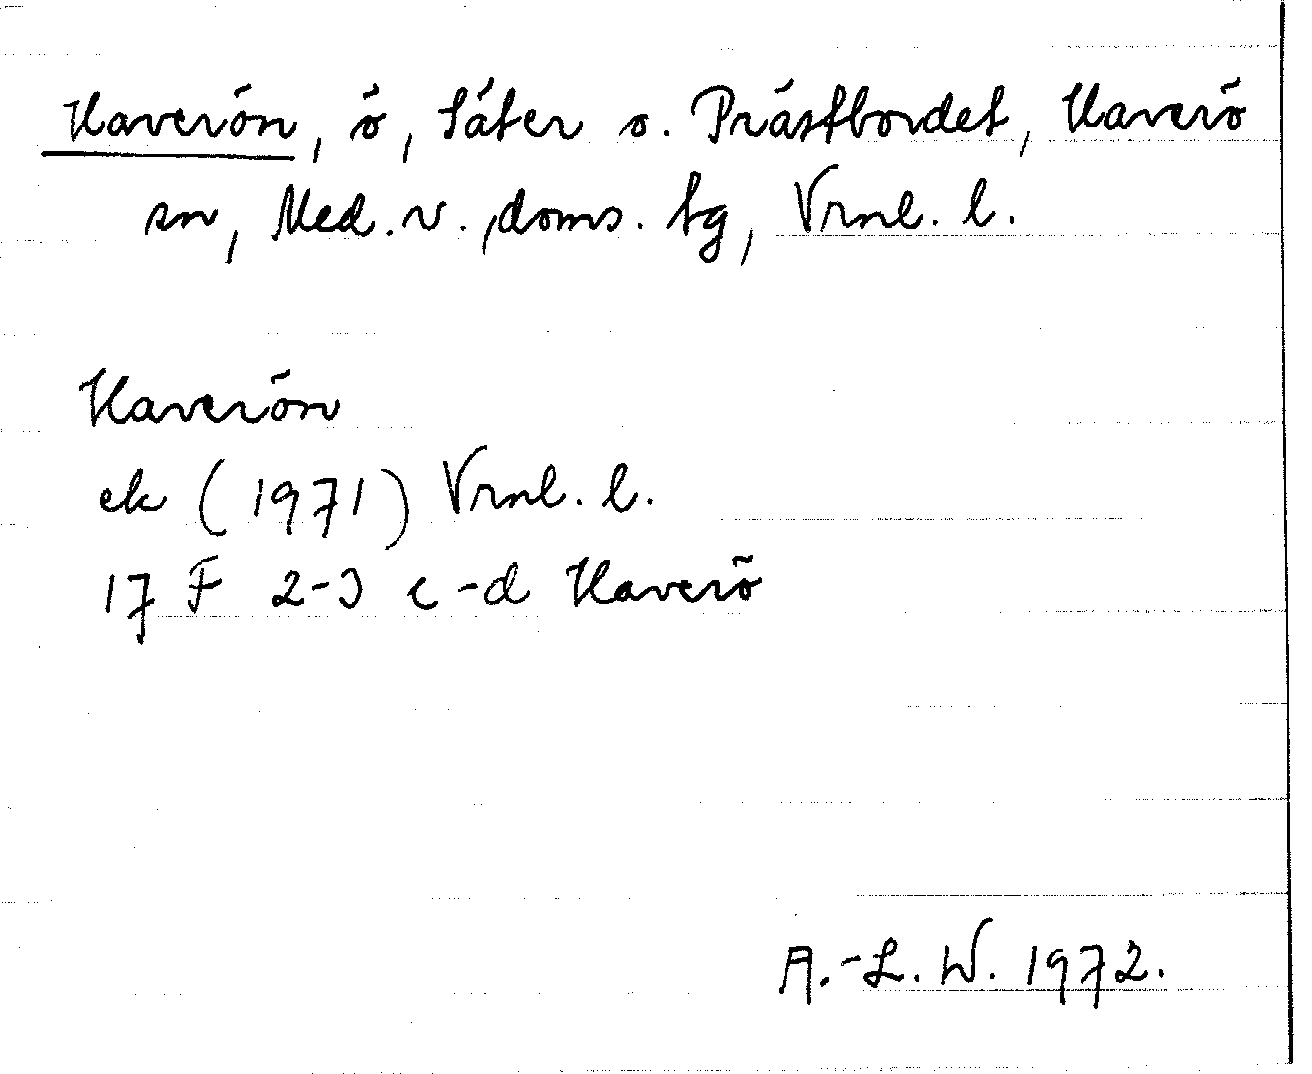 Haverön, ö, säter s. Prästbordet, Haverö
sn, Med. v. doms. tg, Vrnl. l.
Haverön
ek (1971) Vrnl. l.
17 F 2-3 c-d Haverö
A.-L. W. 1972.